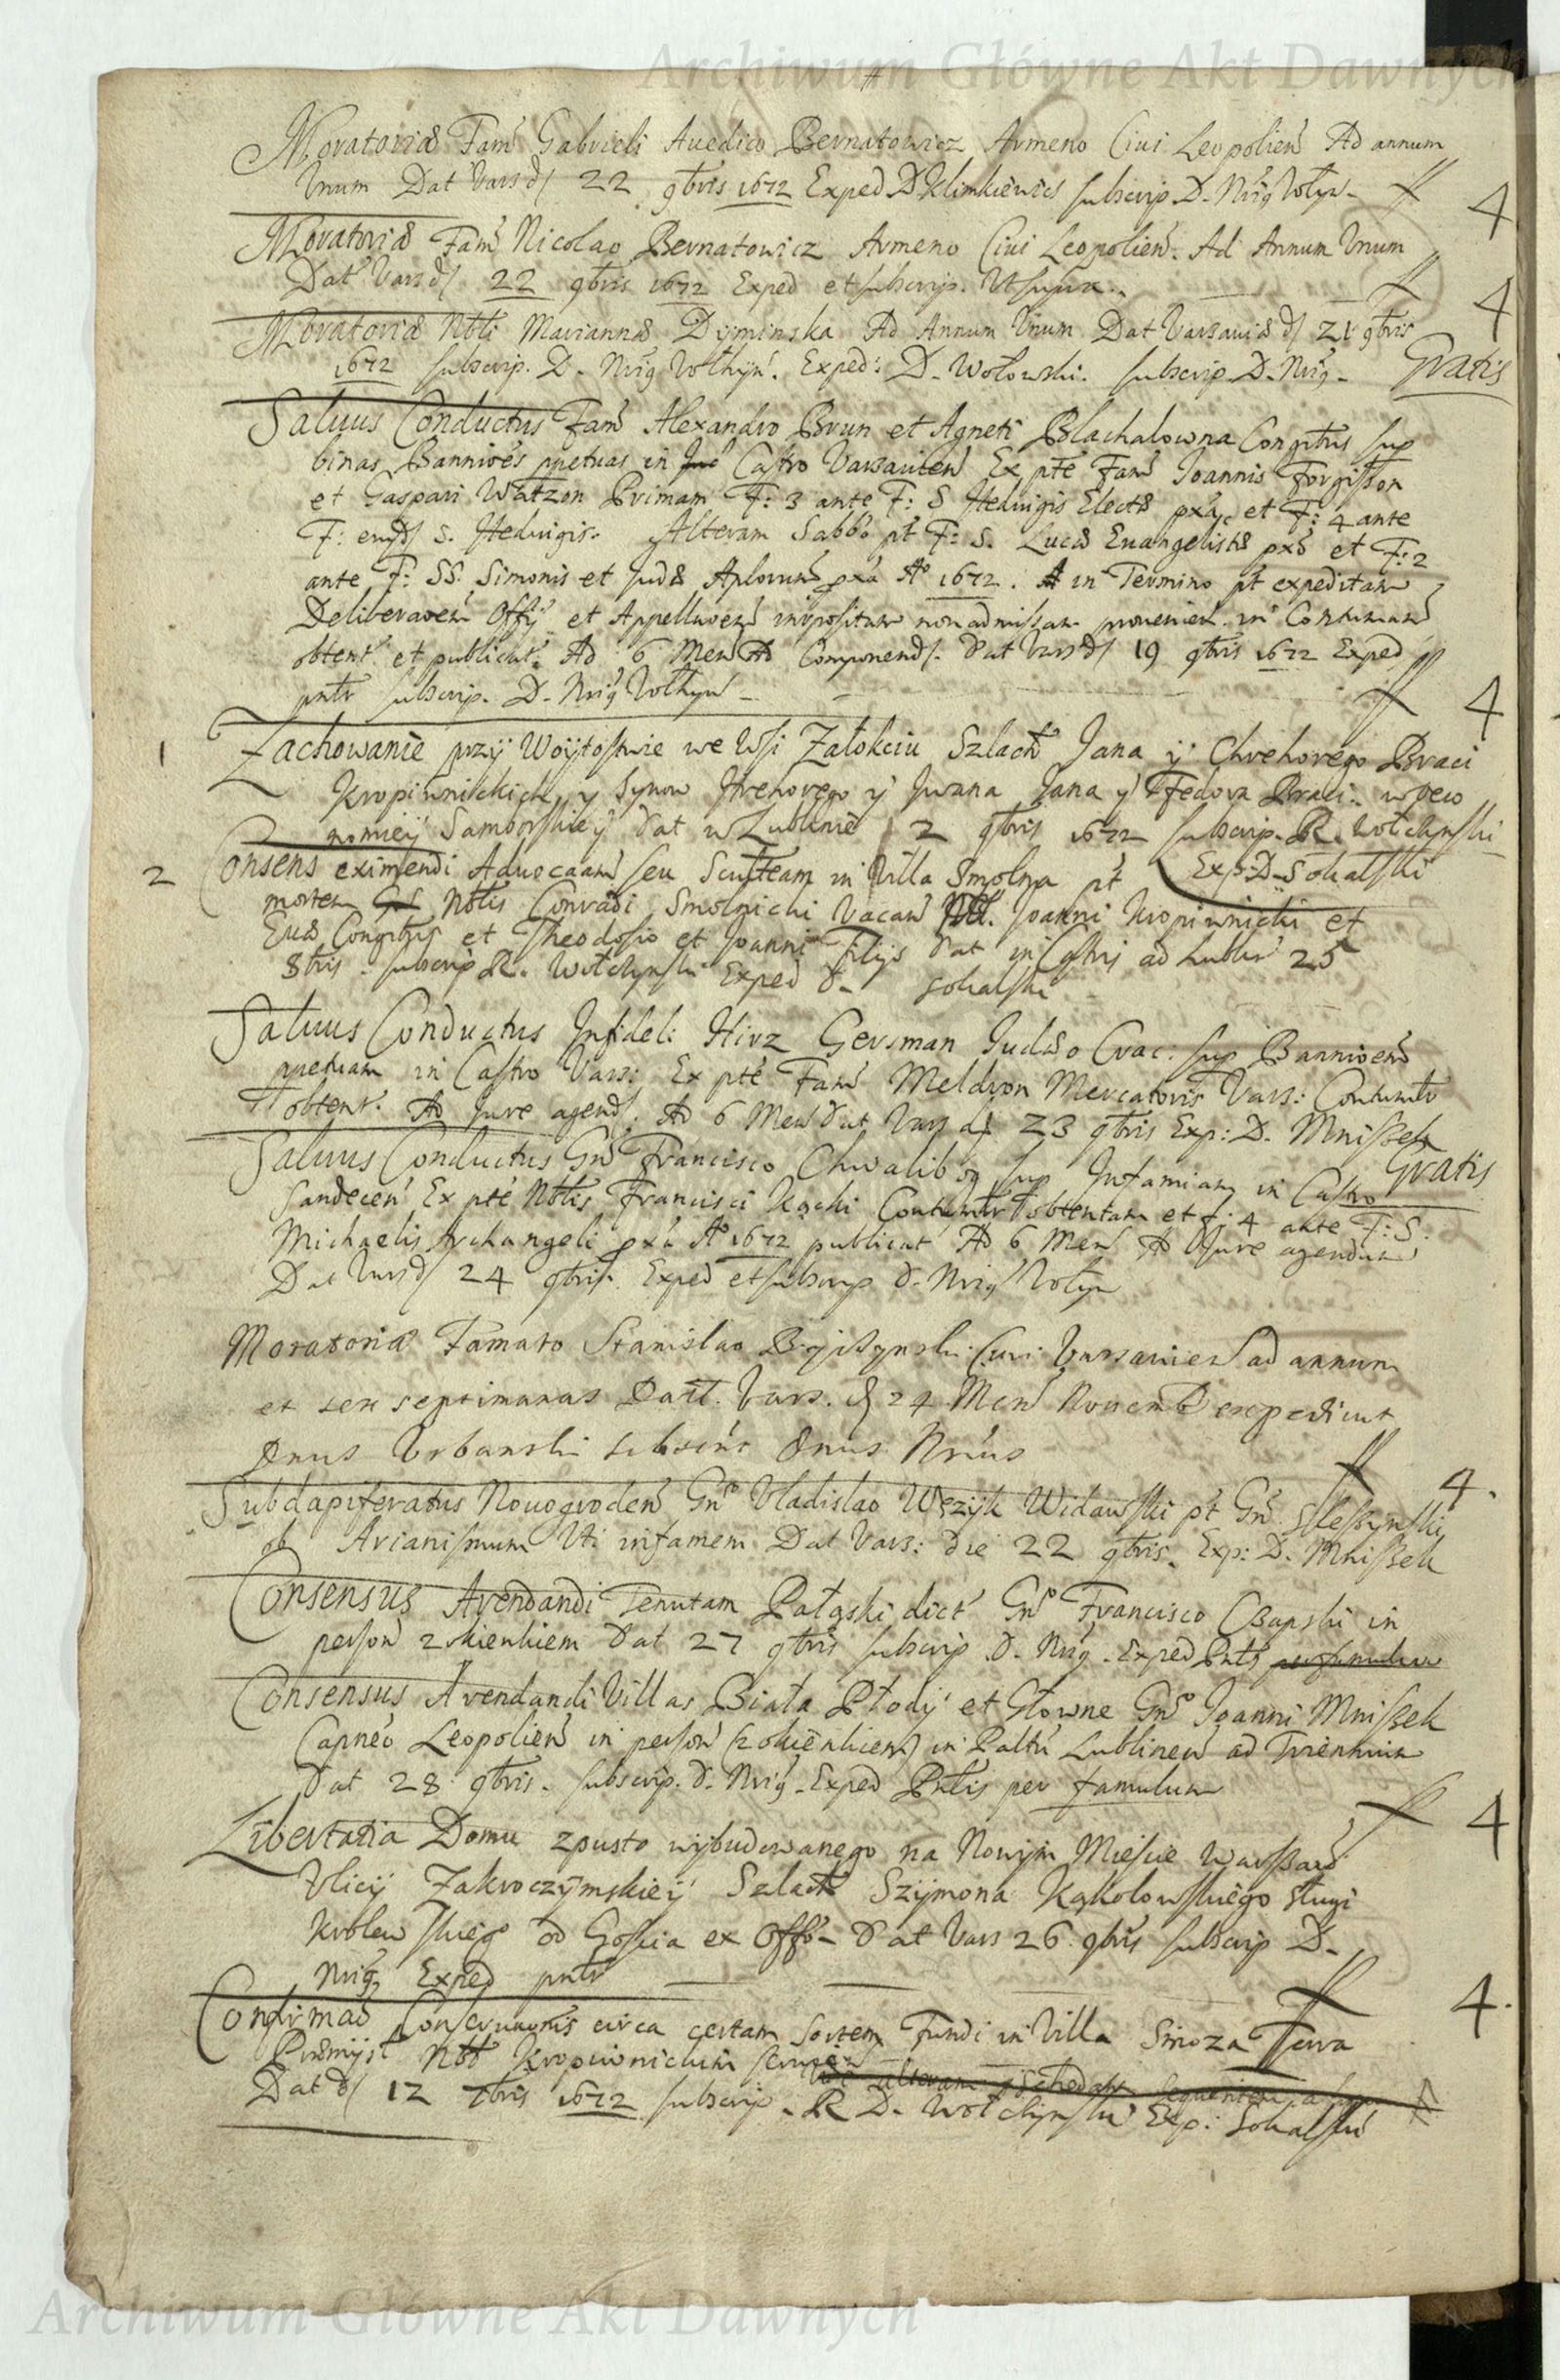 Archiwum Główne Akt Dawnych
Moratoriae Fam̃ Gabrieli Auedico Bernatowicz Armeno Ciui Leopolieñ Ad annum
Vnum Dat Vars d 22 9bris 1672 Exped D Klimkiewicz subscrip D. Nrig Wołyn. ff 4
Moratoriae Fam̃ Nicolao Bernatowicz Armeno Ciui Leopolieñ. Ad Annum Vnum
Dat Vars d 22 9bris 1672 Exped et subscrip. Ut supra. ff 4
Moratoria Nbli Mariannae Dyminska Ad Annum Vnum Dat Varsauiae d 21 9bris
1672 subscrip. D. Nrig Wolhyñ. Exped: D. Wołowski. subscrip D. Nrig. Gratis
Saluus Conductus Fam̃ Alexandro Brun et Agneti Blachalowna Congtbus sup
binas Bannióes ppetuas in Castro Varsauieñ Ex pte Fam̃ Joannis Forgisson
et Gaspari Watzon Primam F: 3 ante F: S Heduigis Electae pxã, et F: 4 ante
F: eiusd S. Heduigis. Alteram Sabbo pt F: S. Lucae Euangelistae pxã et F: 2
ante F: SS. Simonis et Judae Aplorum pxã Ao 1672. in Termino pt expeditam
Deliberaoem Offij et Appellaoem interpositam non admissam prouenien. in Contumam
obtent. et publicat. Ad 6 Men Ad Componend. Dat Vars d 19 9bris 1672 Exped
pntr subscrip. D. Nrig Wolhyn ff 4
1 Zachowanie przy Woytostwie we Wsi Załokciu Szlach Jana y Chrehorego Braci
Kropiwnickich, y Synow Hrehorego y Iwana Jana y Fedora Braci. w oeco
nomiey Samborskiey Dat w Lublinie 2 9bris 1672 subscrip. R. Wołchynski
Exp: D. Sokalski
2 Consens eximendi Aduocaam seu Scultetiam in Villa Smolna pt
mortem Nblis Conradi Smolnicki Vacañ Nbl. Joanni Kropiwnicki et
Euae Congibus et Theodosio et Joanni Filijs Dat in Castris ad Lublin 25
8bris. subscrip R. Wołchynski Exped D. Sokalski
Saluus Conductus Infideli Hirz Gersman Judaeo Crac: sup Bannioem
ppetuam in Castro Vars: Ex pte Fam̃ Meldron Mercatoris Vars: Contumtr
obtent. Ad Jure agend. Ad 6 Men Dat Vars d 23 9bris Exp: D. Mniszek
Gratis
Saluus Conductus Gñ Francisco Chwalibog sup Infamiam in Castro
Sandeceñ Ex pte Nblis Francisci Kącki Contumtr obtentam et f. 4 ante F: S.
Michaelis Archangeli pxã Ao 1672 publicat Ad 6 Men Ad Jure agendum
Dat Vars d 24 9bris. Exped et subscrip D. Nrig Wolyn
Moratoriae Famato Stanislao Ciui Varsauien ad annum
et sex septimanas Datt. Vars. d 24 Men Nouemb expediuit
Dnus Vrbanski subscrip Dnus Nrius ff 4.
Subdapiferatus Nouogrodeñ Gño Vladislao Węzyk Widawski pt Gñ. Sleszynski
ob Arianismum Vti infamem Dat Vars: die 22 9bris. Exp: D. Mniszek
Consensus Arendandi Tenutam Patąski dict Gño Francisco Czapski in
person 2 okienkiem Dat 27 9bris subscrip D. Nrig. Exped Pntis per famulum
Consensus Arendandi Villas Biała Płody et Głowne Gño Joanni Mniszek
Capneo Leopolieñ in person (z okienkiem) in Pałtu Lublineñ ad Triennium
Dat 28 9bris. subscrip. D. Nrig. Exped Pntis per famulum ff 4
Libertatia Domu z pusto wybudowanego na Nowym Miescie Warszaw
Vlicy Zakroczymskiey Szlach Szymona Kąkolowskiego sługi
Krolewskiego od Goscia ex Offo. Dat Vars 26. 9bris subscrip D.
Nrig Exped pntr ff 4.
Confirmaõ Conseruaonis circa certam Sortem Fundi in Villa Smoza Terra
Praemysl Nbb Kropiwnickim seruien
Dat d 12 7bris 1672 subscrip. R D. Wołchynski Exp: Sokalski
Archiwum Główne Akt Dawnych